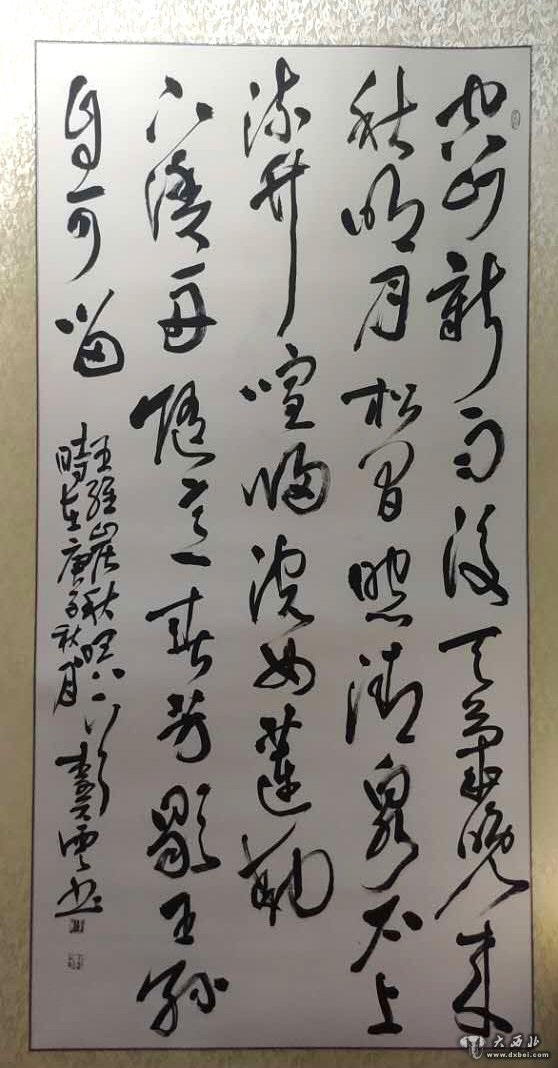 空山新雨後天氣晚来
秋明月松间照清泉石上
流竹喧歸浣女蓮動
下渔舟随意春芳歇王孙
自可留
王維山居秋暝
時在庚子秋月
大西北
www.dxbei.com